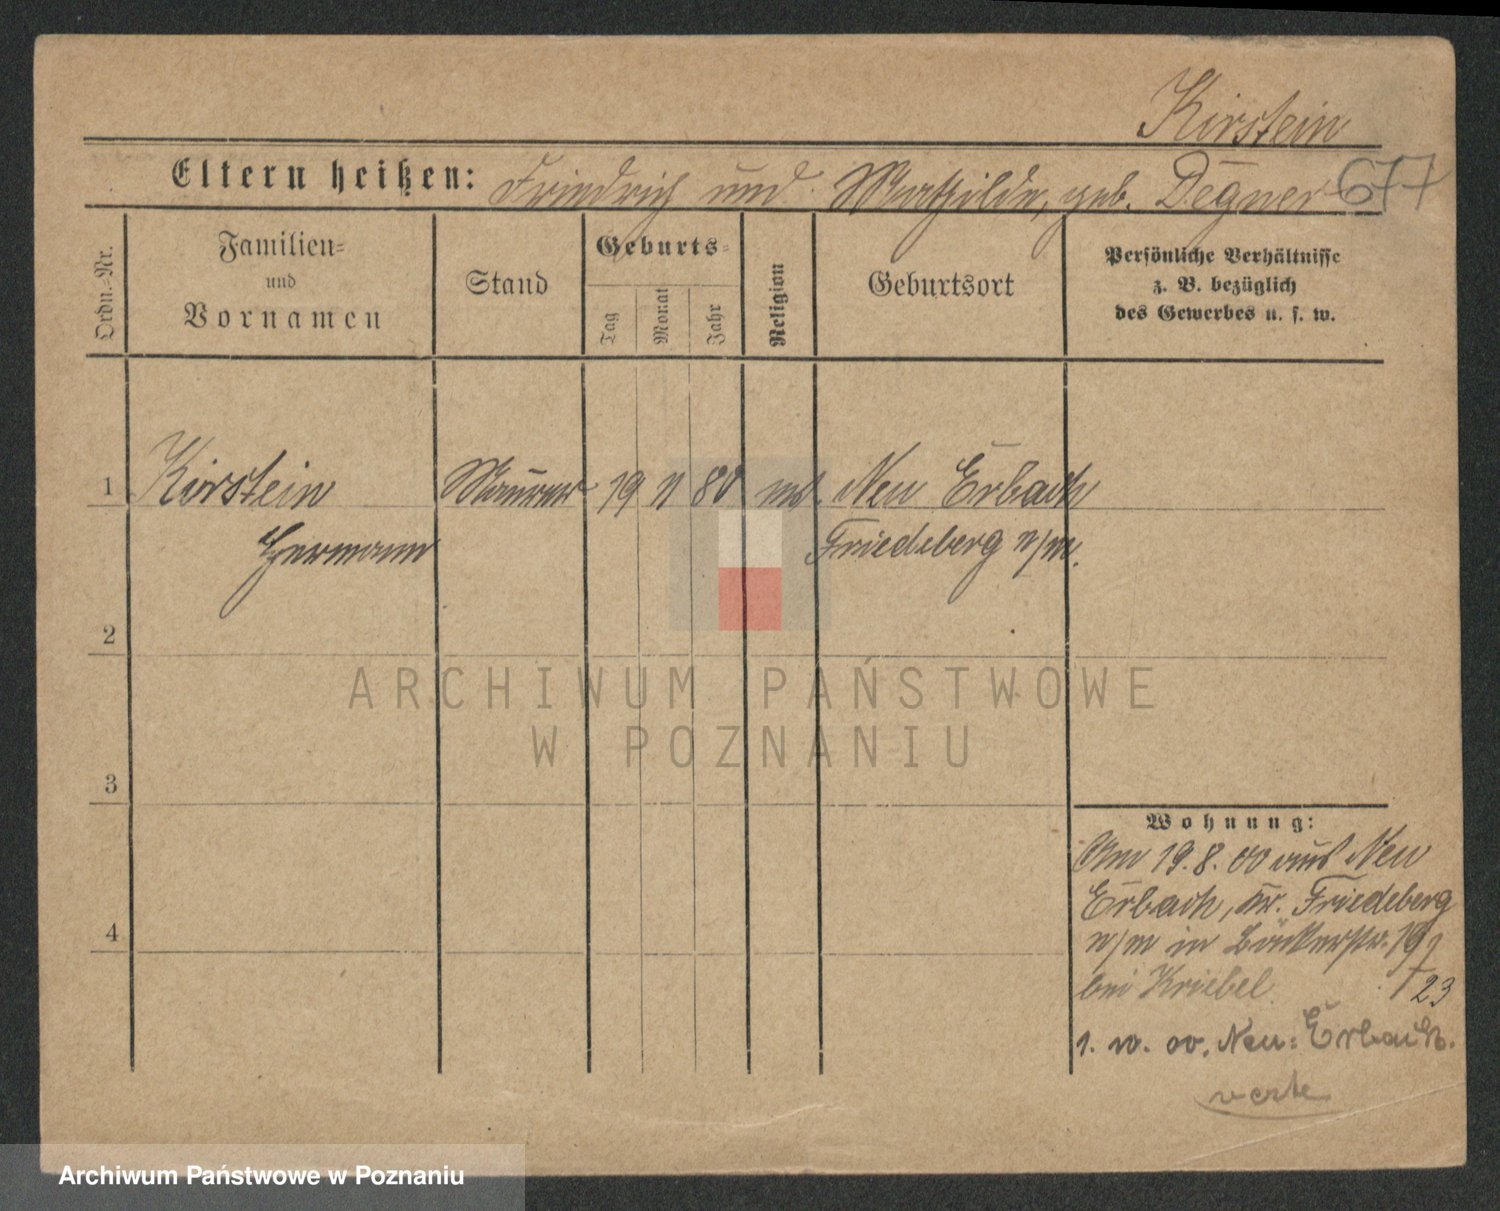 Kirstein
677
Eltern heißen: Friedrich und Mathilde, geb. Degner
Ordn.-Nr.
Familien-
und
Vornamen
Stand
Geburts-
Tag
Monat
Jahr
Religion
Geburtsort
Persönliche Verhältnisse
z. B. bezüglich
des Gewerbes u. s. w.
1 Kirstein Maurer 19 11 80 Neu Erbach
Hermann Friedeberg n/m.
2
3
4
Wohnung:
Am 19.8.00 aus Neu
Erbach, Kr. Friedeberg
n/m in Bäckerstr. 19
bei Kriebel
23
1. 10. 00. Neu-Erbach.
verte
ARCHIWUM PAŃSTWOWE
W POZNANIU
Archiwum Państwowe w Poznaniu